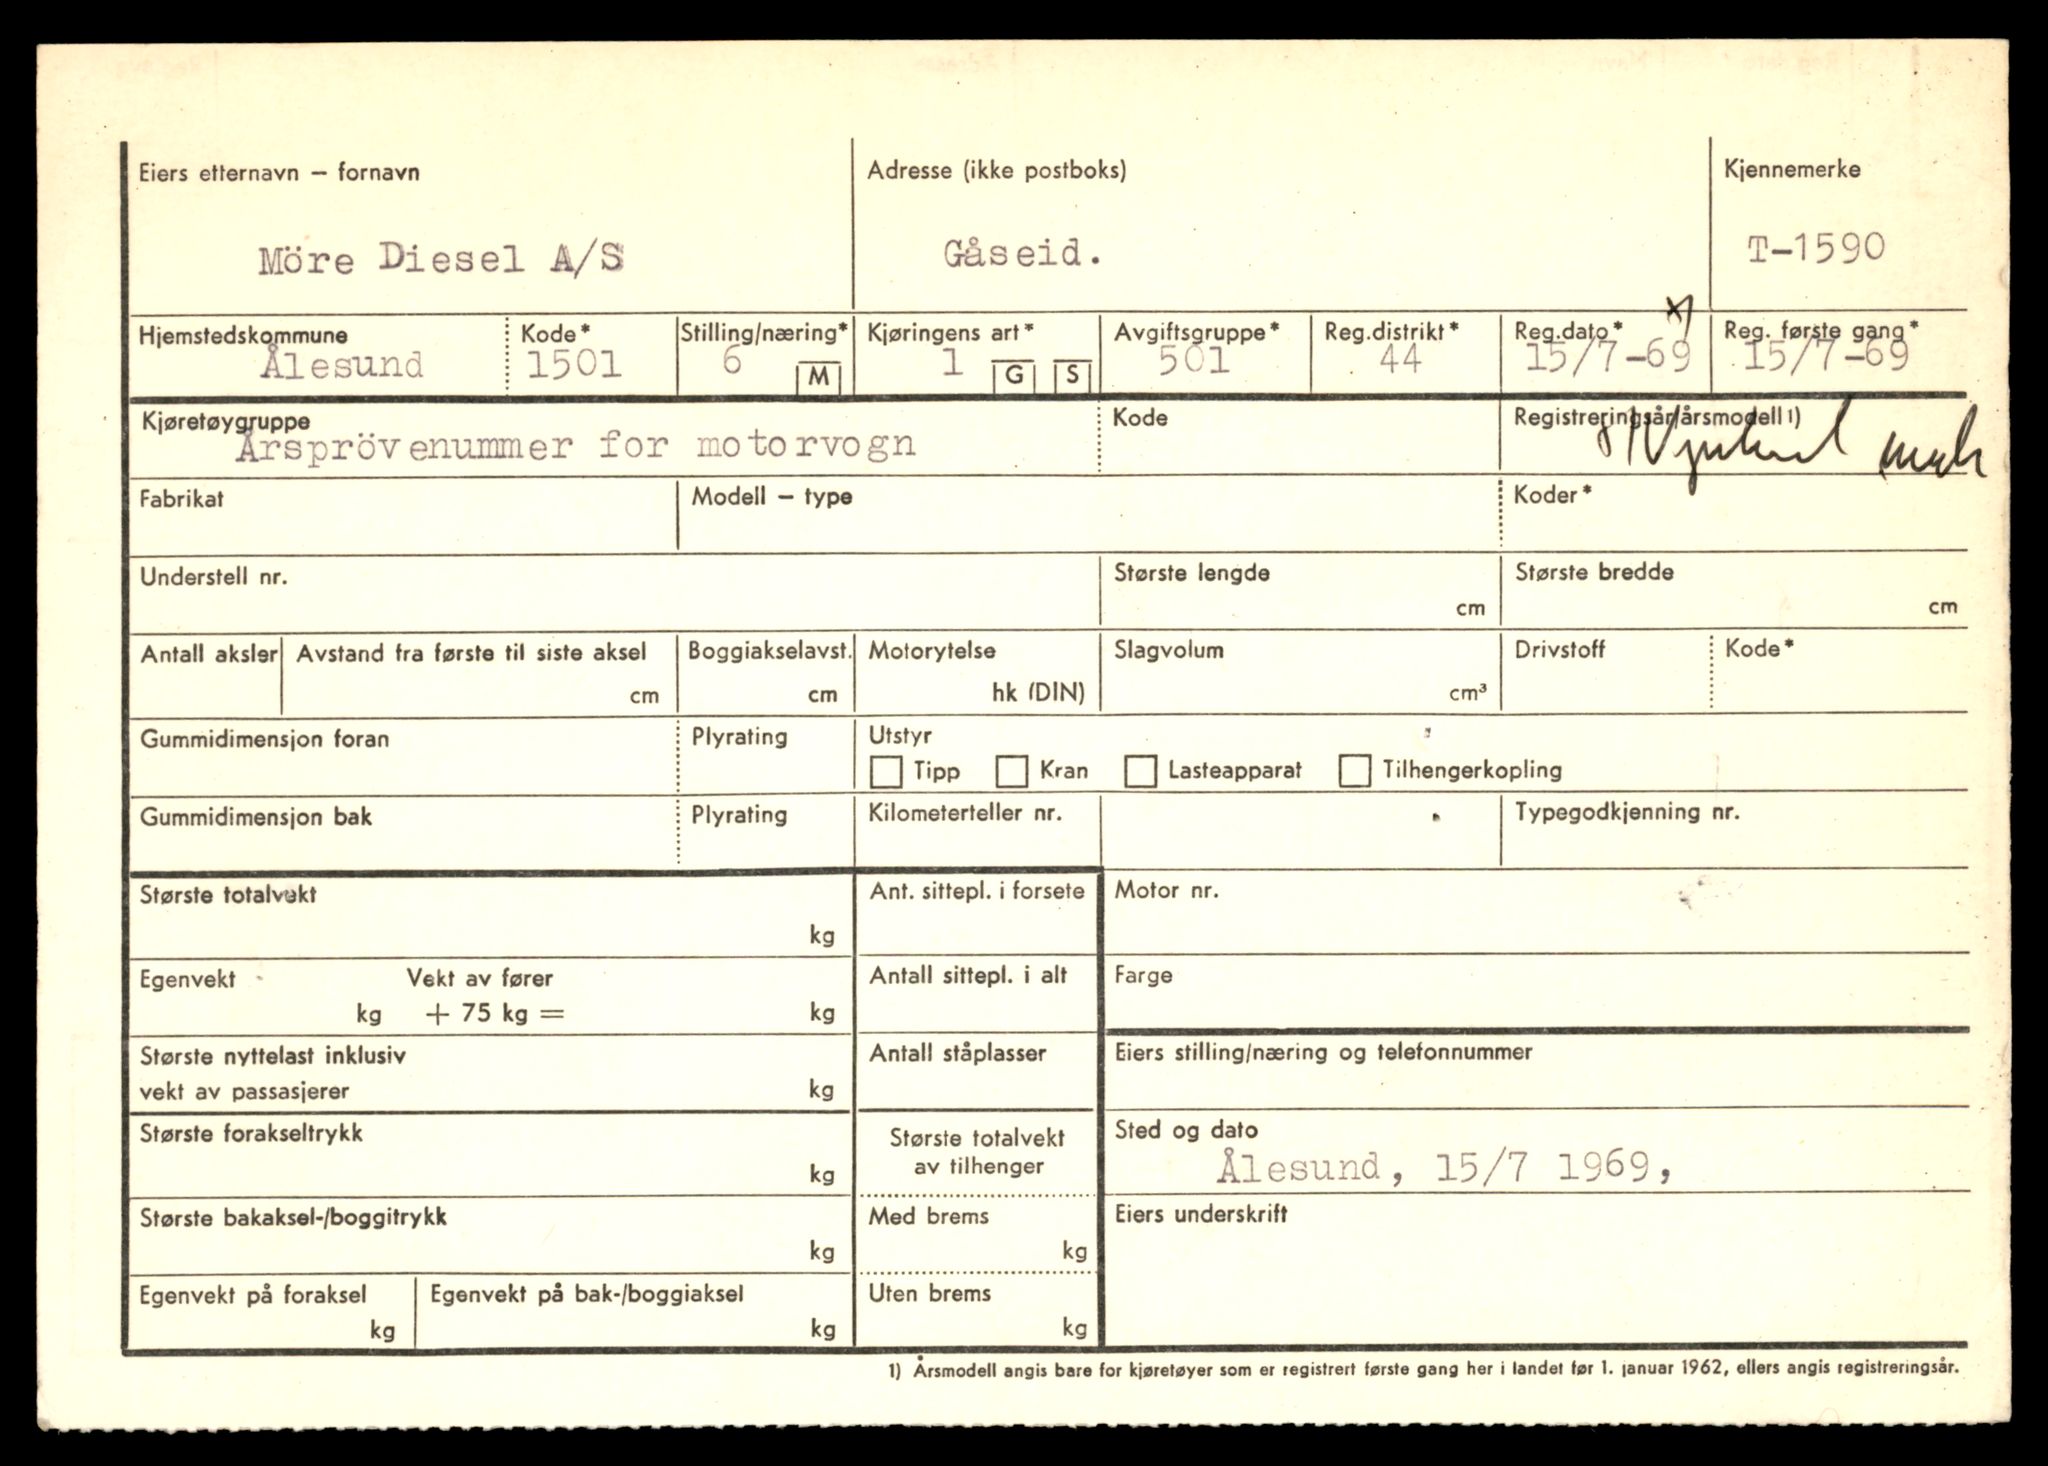 Eiers etternavn – fornavn
Adresse (ikke postboks)
Kjennemerke
Möre Diesel A/S
Gåseid.
T-1590
Hjemstedskommune
Kode*
Stilling/næring*
Kjøringens art*
Avgiftsgruppe*
Reg.distrikt*
Reg.dato*
x)
Reg. første gang*
Ålesund
1501
6
M
1
G
S
501
44
15/7-69
15/7-69
Kjøretøygruppe
Kode
Registreringsår/årsmodell 1)
Årsprövenummer for motorvogn
Fabrikat
Modell – type
Koder*
Understell nr.
Største lengde
cm
Største bredde
cm
Antall aksler
Avstand fra første til siste aksel
cm
Boggiakselavst.
cm
Motorytelse
hk (DIN)
Slagvolum
cm³
Drivstoff
Kode*
Gummidimensjon foran
Plyrating
Utstyr
Tipp
Kran
Lasteapparat
Tilhengerkopling
Gummidimensjon bak
Plyrating
Kilometerteller nr.
Typegodkjenning nr.
Største totalvekt
kg
Ant. sittepl. i forsete
Motor nr.
Egenvekt
Vekt av fører
kg + 75 kg =
kg
Antall sittepl. i alt
Farge
Største nyttelast inklusiv
vekt av passasjerer
kg
Antall ståplasser
Eiers stilling/næring og telefonnummer
Største forakseltrykk
kg
Største totalvekt
av tilhenger
Sted og dato
Ålesund, 15/7 1969,
Største bakaksel-/boggitrykk
kg
Med brems
kg
Eiers underskrift
Egenvekt på foraksel
kg
Egenvekt på bak-/boggiaksel
kg
Uten brems
kg
1) Årsmodell angis bare for kjøretøyer som er registrert første gang her i landet før 1. januar 1962, ellers angis registreringsår.